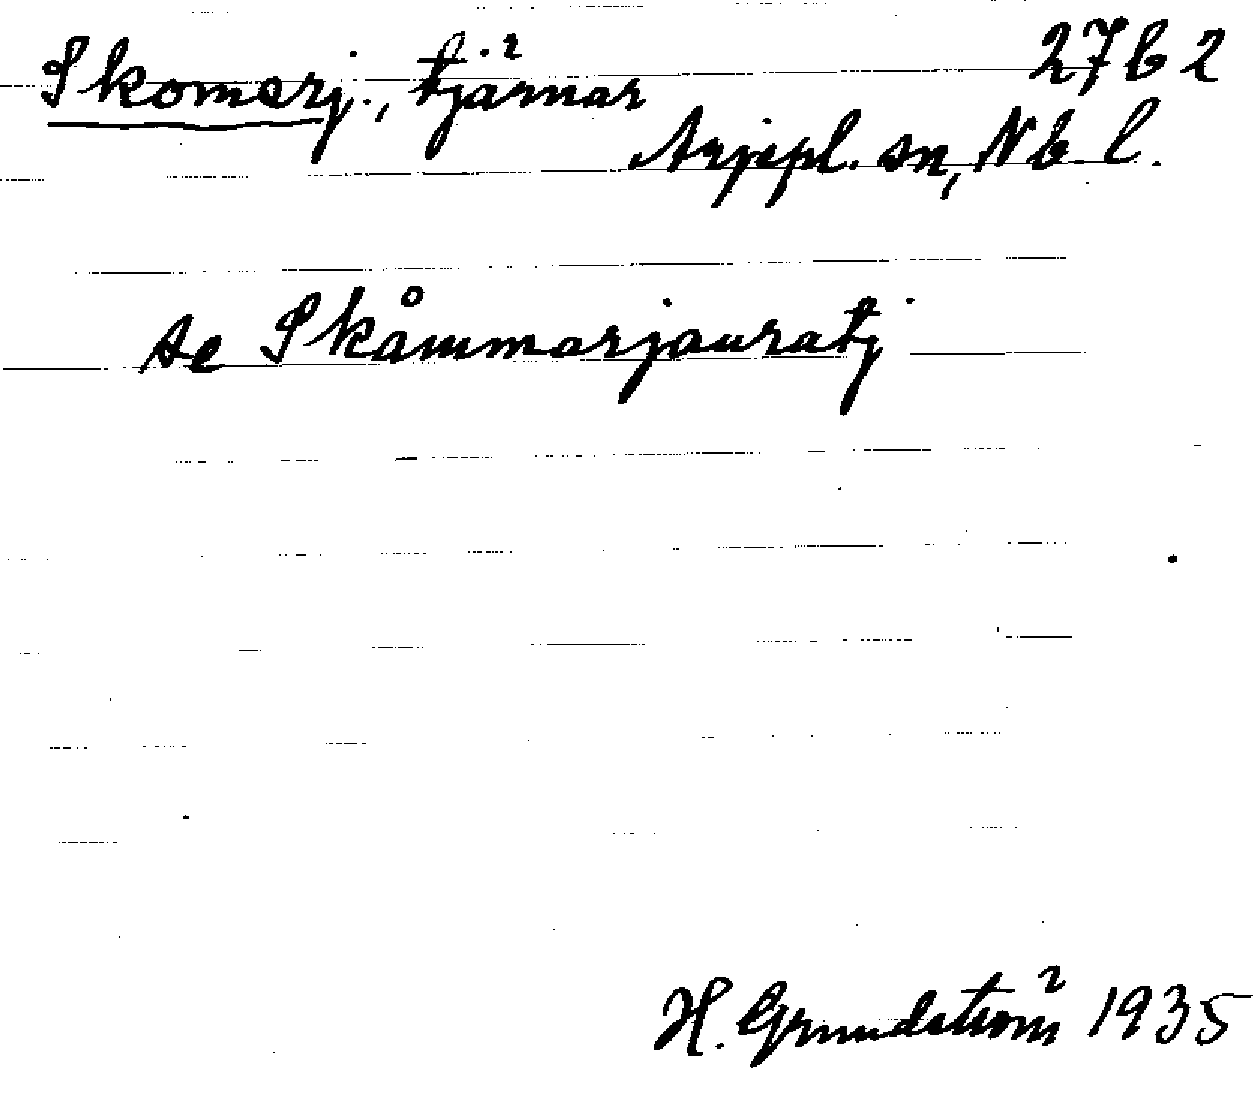 Skomerj., tjärnar 27b2
Arjepl. sn, Nb. l.
se Skåmmarjauratj
H. Grundström 1935